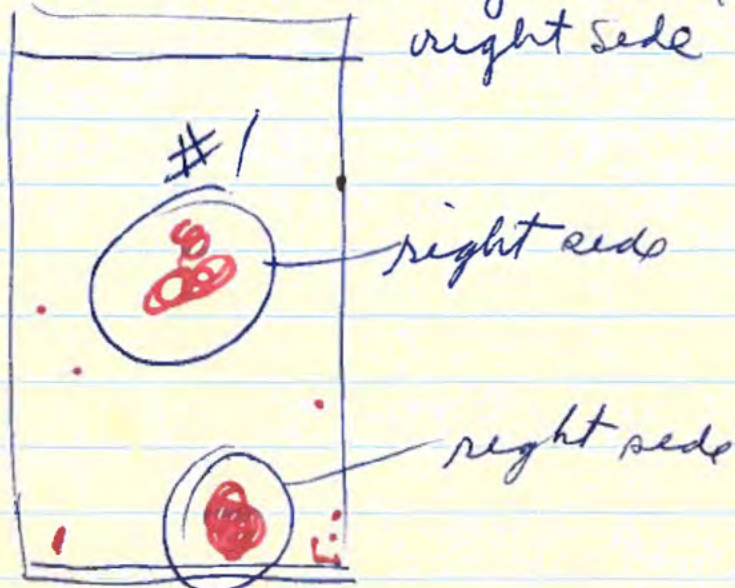 right side
#1
right side
right side